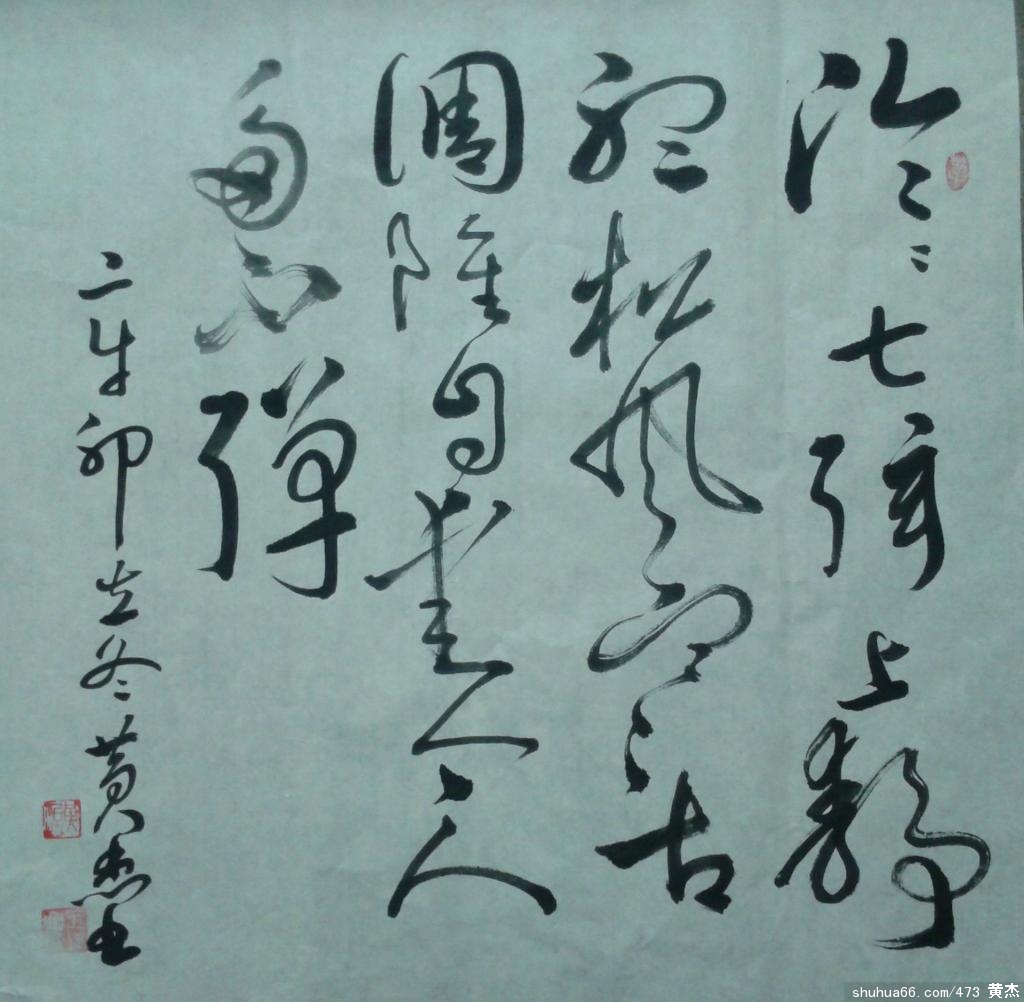 泠泠七弦上静
听松风寒古
调虽自爱今人
多不弹
辛卯立冬黄杰书
shuhua66.com/473 黄杰